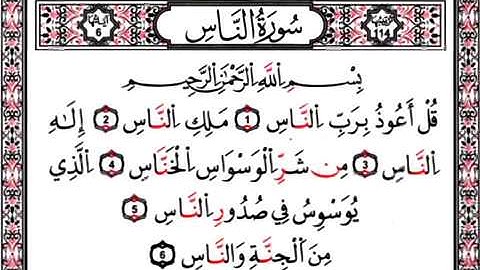 آياتها 6 سُورَةُ النَّاسِ ترتيبها 114
بِسْمِ اللَّهِ الرَّحْمَٰنِ الرَّحِيمِ
قُلْ أَعُوذُ بِرَبِّ النَّاسِ 1 مَلِكِ النَّاسِ 2 إِلَٰهِ
النَّاسِ 3 مِن شَرِّ الْوَسْوَاسِ الْخَنَّاسِ 4 الَّذِي
يُوَسْوِسُ فِي صُدُورِ النَّاسِ 5
مِنَ الْجِنَّةِ وَالنَّاسِ 6